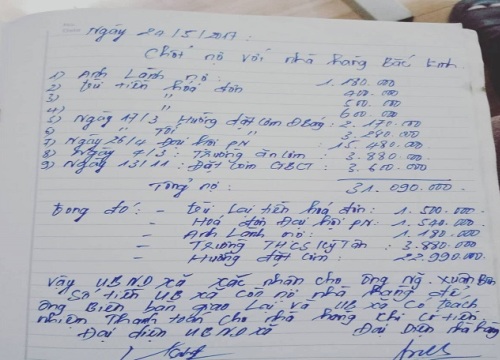 Ngày 24/5/2017:
Chốt nợ với nhà hàng Bắc Kinh.
1) Anh Lành nợ: 1.180.000
2) Trừ tiền hoá đơn 400.000
3) " 500.000
4) " 600.000
5) Ngày 17/3 Hường đặt cơm Đ Bảng: 2.170.000
6) " Tôi " : 3.280.000
7) Ngày 26/4 Đại hội PN: 15.480.000
8) Ngày 7/3: Trường ăn cơm: 3.880.000
9) Ngày 13/11: Đặt cơm GBCT: 3.600.000
Tổng nợ: 31.090.000
Trong đó: - Trừ lại tiền hoá đơn: 1.500.000
- Hoá đơn Đại hội PN: 1.500.000
- Anh Lành nợ: 1.180.000
- Trường THCS Kỳ Tân: 3.880.000
- Hường đặt cơm: 22.990.000
Vậy UBND xã xác nhận cho ông Ng Xuân Biên
Số tiền UB xã còn nợ nhà hàng để
ông Biên bàn giao lại và UB xã có trách
nhiệm Thanh toán cho nhà hàng khi có tiền
Đại diện UBND xã Đại Diện nhà hàng